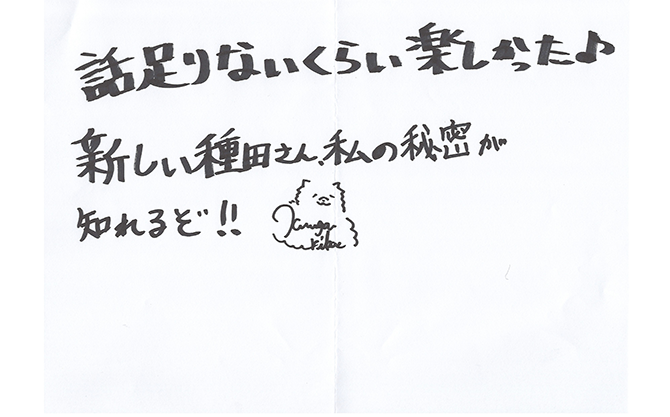 話足りないくらい楽しかった♪
新しい種田さん、私の秘密が
知れるぞ!!